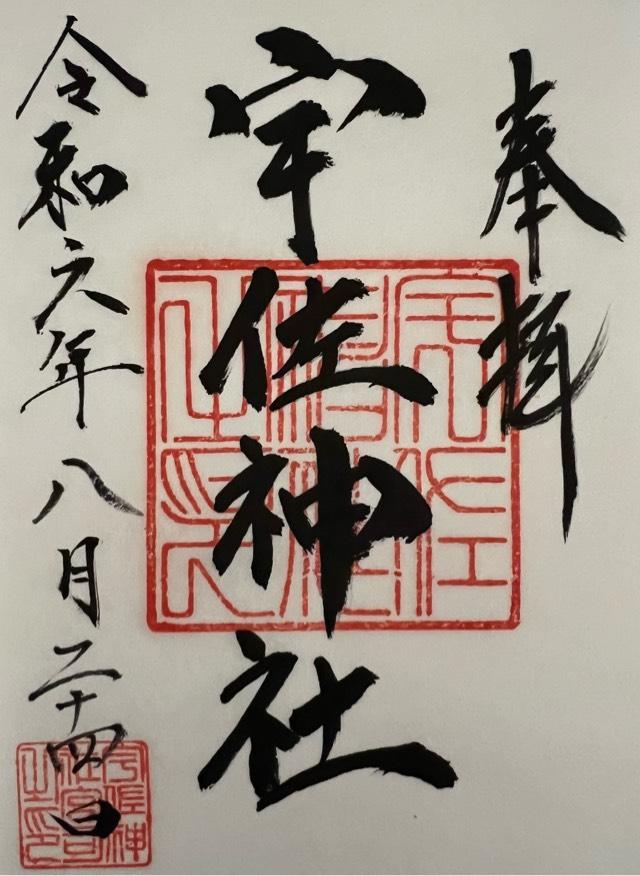 奉拝
宇佐神社
令和六年八月二十四日